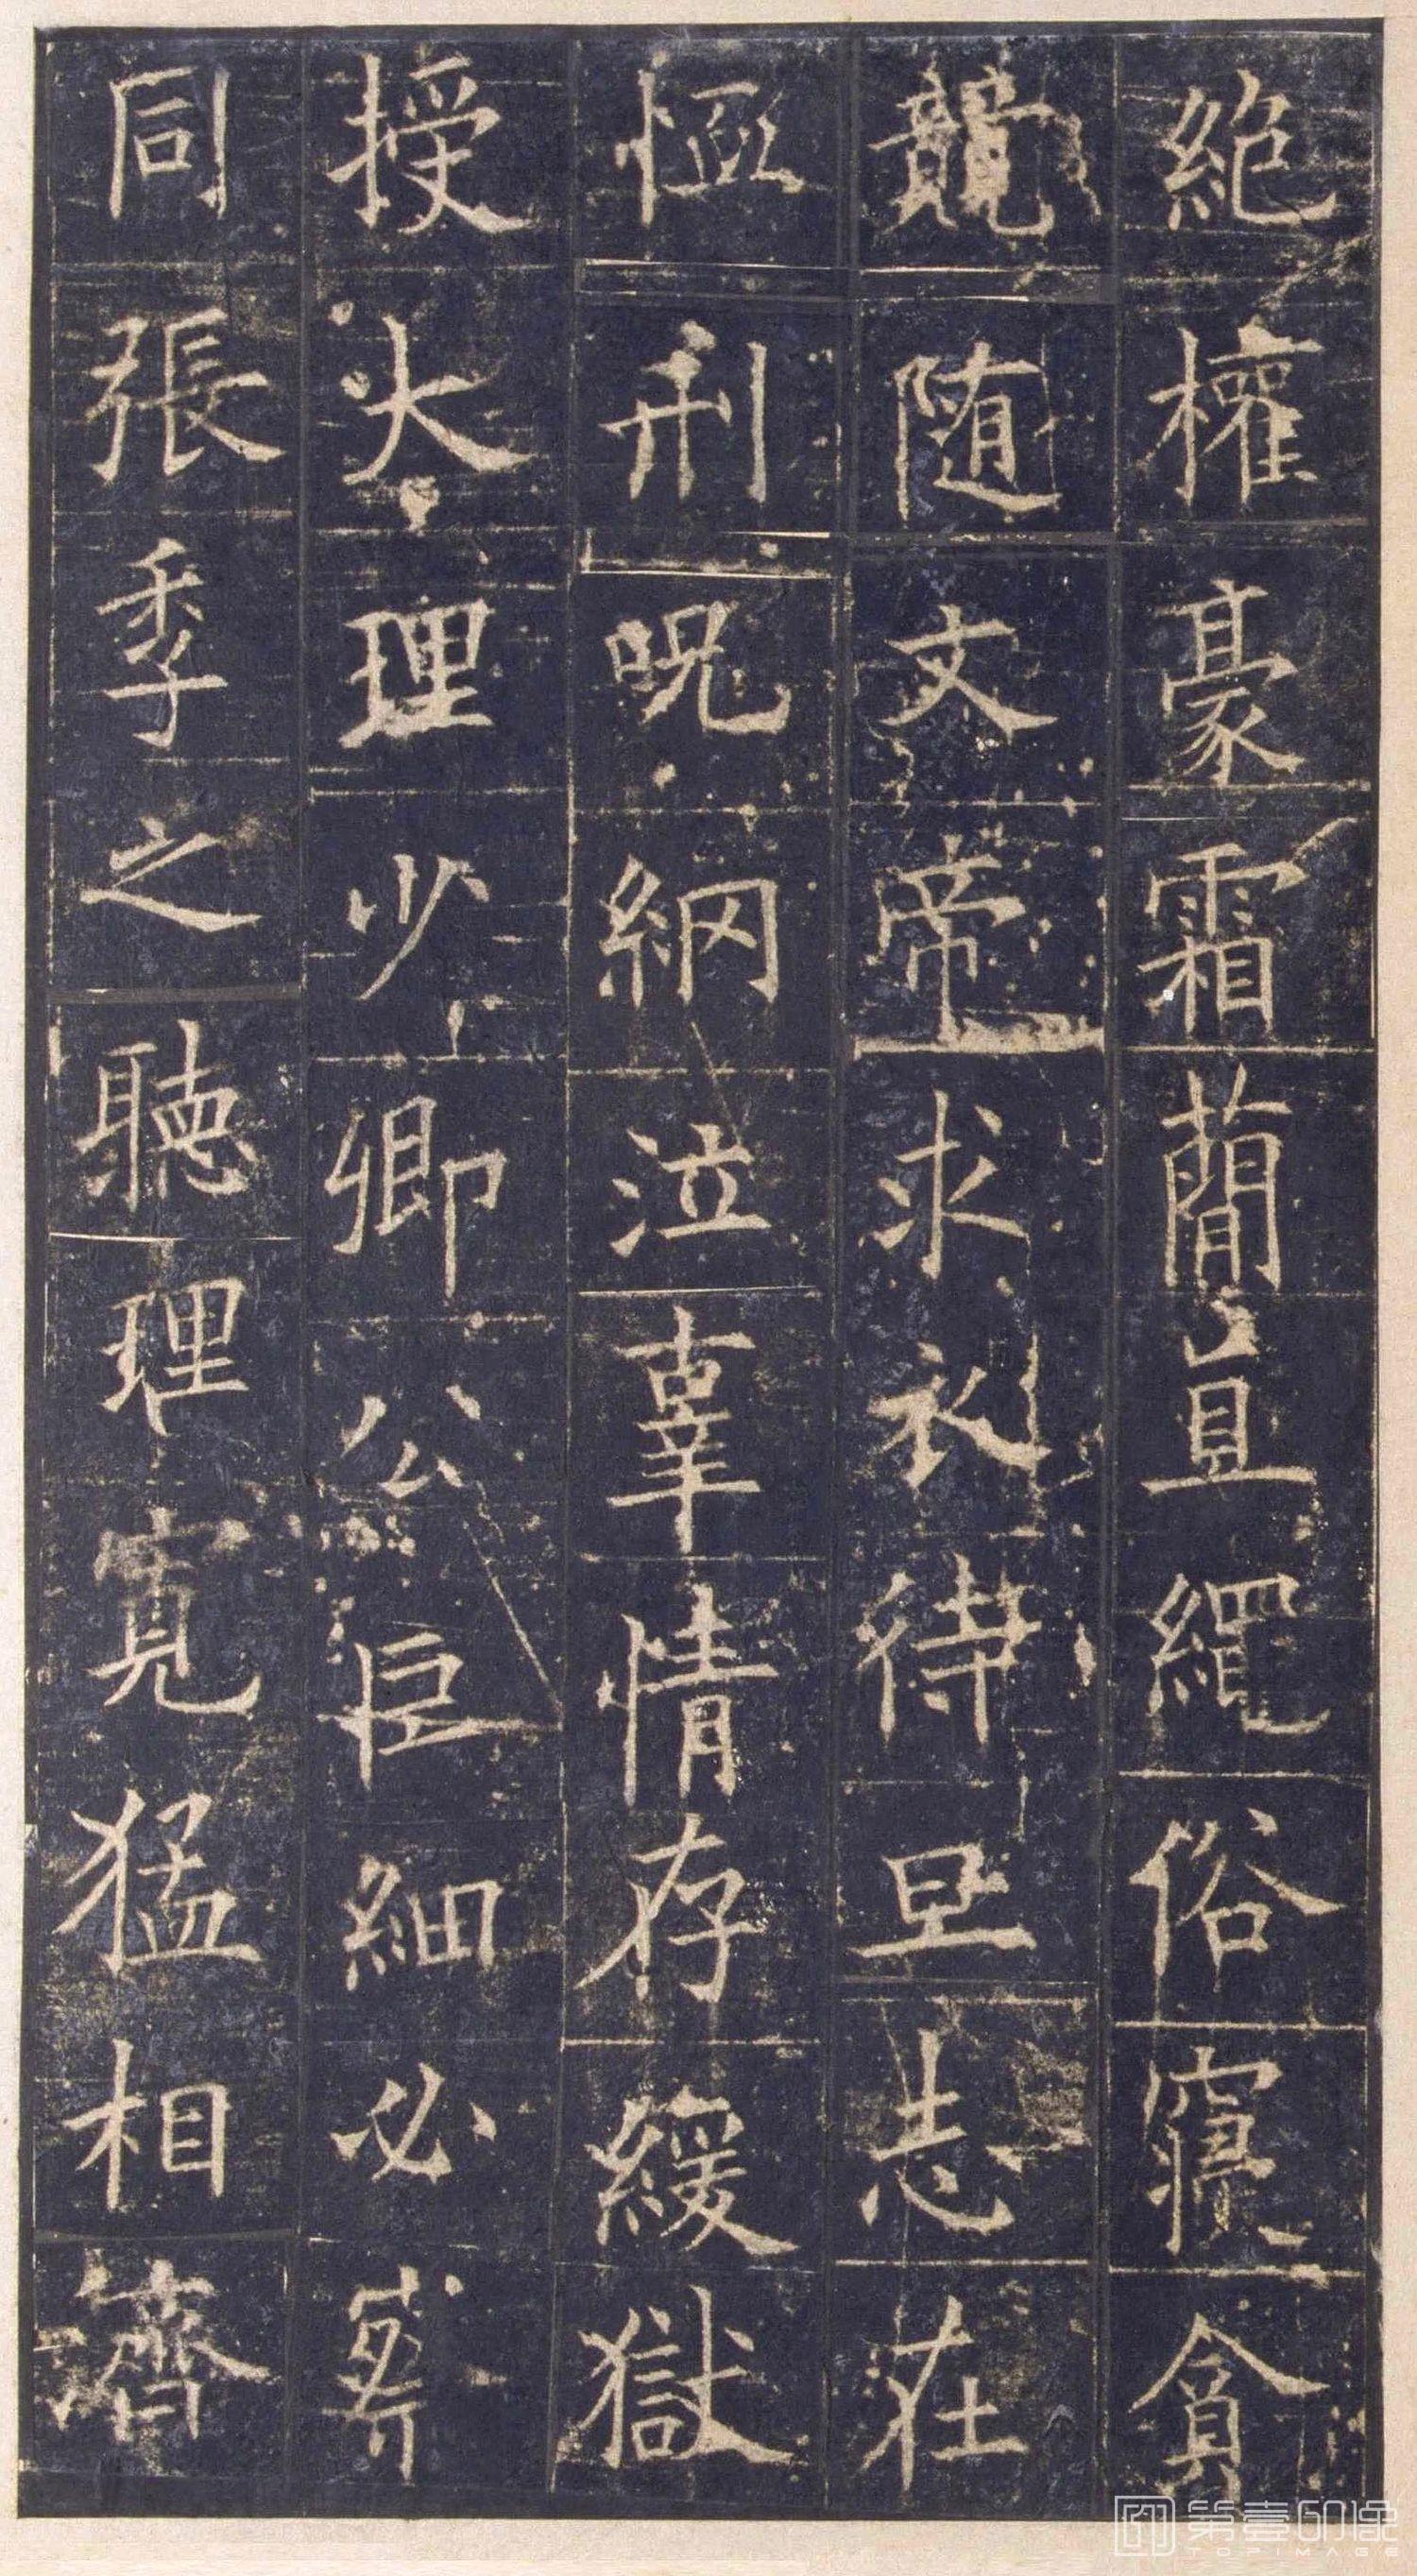 絶權豪霜蕑且繩俗寢貪
競随文帝求衣待旦志在
恤刑呪網泣辜情存緩獄
授大理少卿公巨細必察
同張季之聽理寛猛相濟
第壹印像
TOPIMAGE